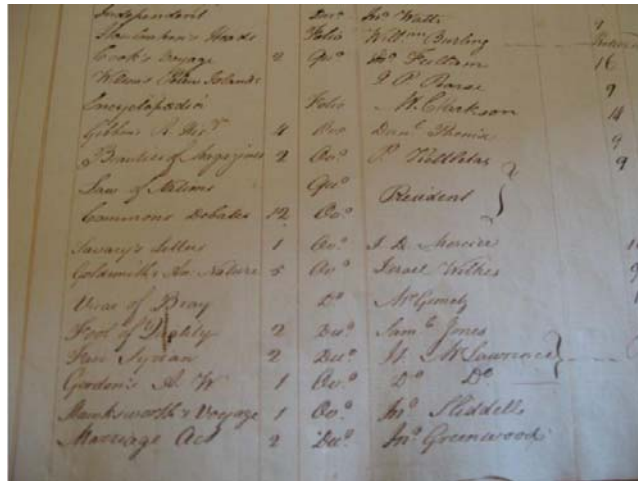 Independent Duo Jno Watts 9
Heads Folio Willm Burling
Cook's Voyage 2 Qto Jno Fulham 16
Wilsons Pelew Islands J P Barse 9
Encyclopædia Folio M. Clarkson 14
Gibbons R. 4 Danl Phenix 9
Beauties of Magazines 2 Ovo P. Kettletas 9
Law of Nations Qto President
Commons Debates 12 Ovo
Savary's Letters 1 Ovo J. D. Mercier
Goldsmith's An. Nature 5 Ovo Israel Wilkes
Vicar of Bray Do
Fool of Quality 2 Duo Saml Jones
Fair Syrian 2 Duo McLawrence
Gordon's A. W 1 Ovo Do Do
Hawksworth's Voyage 1 Ovo Jno Sliddell
Marriage Act 2 Duo Jno Greenwood